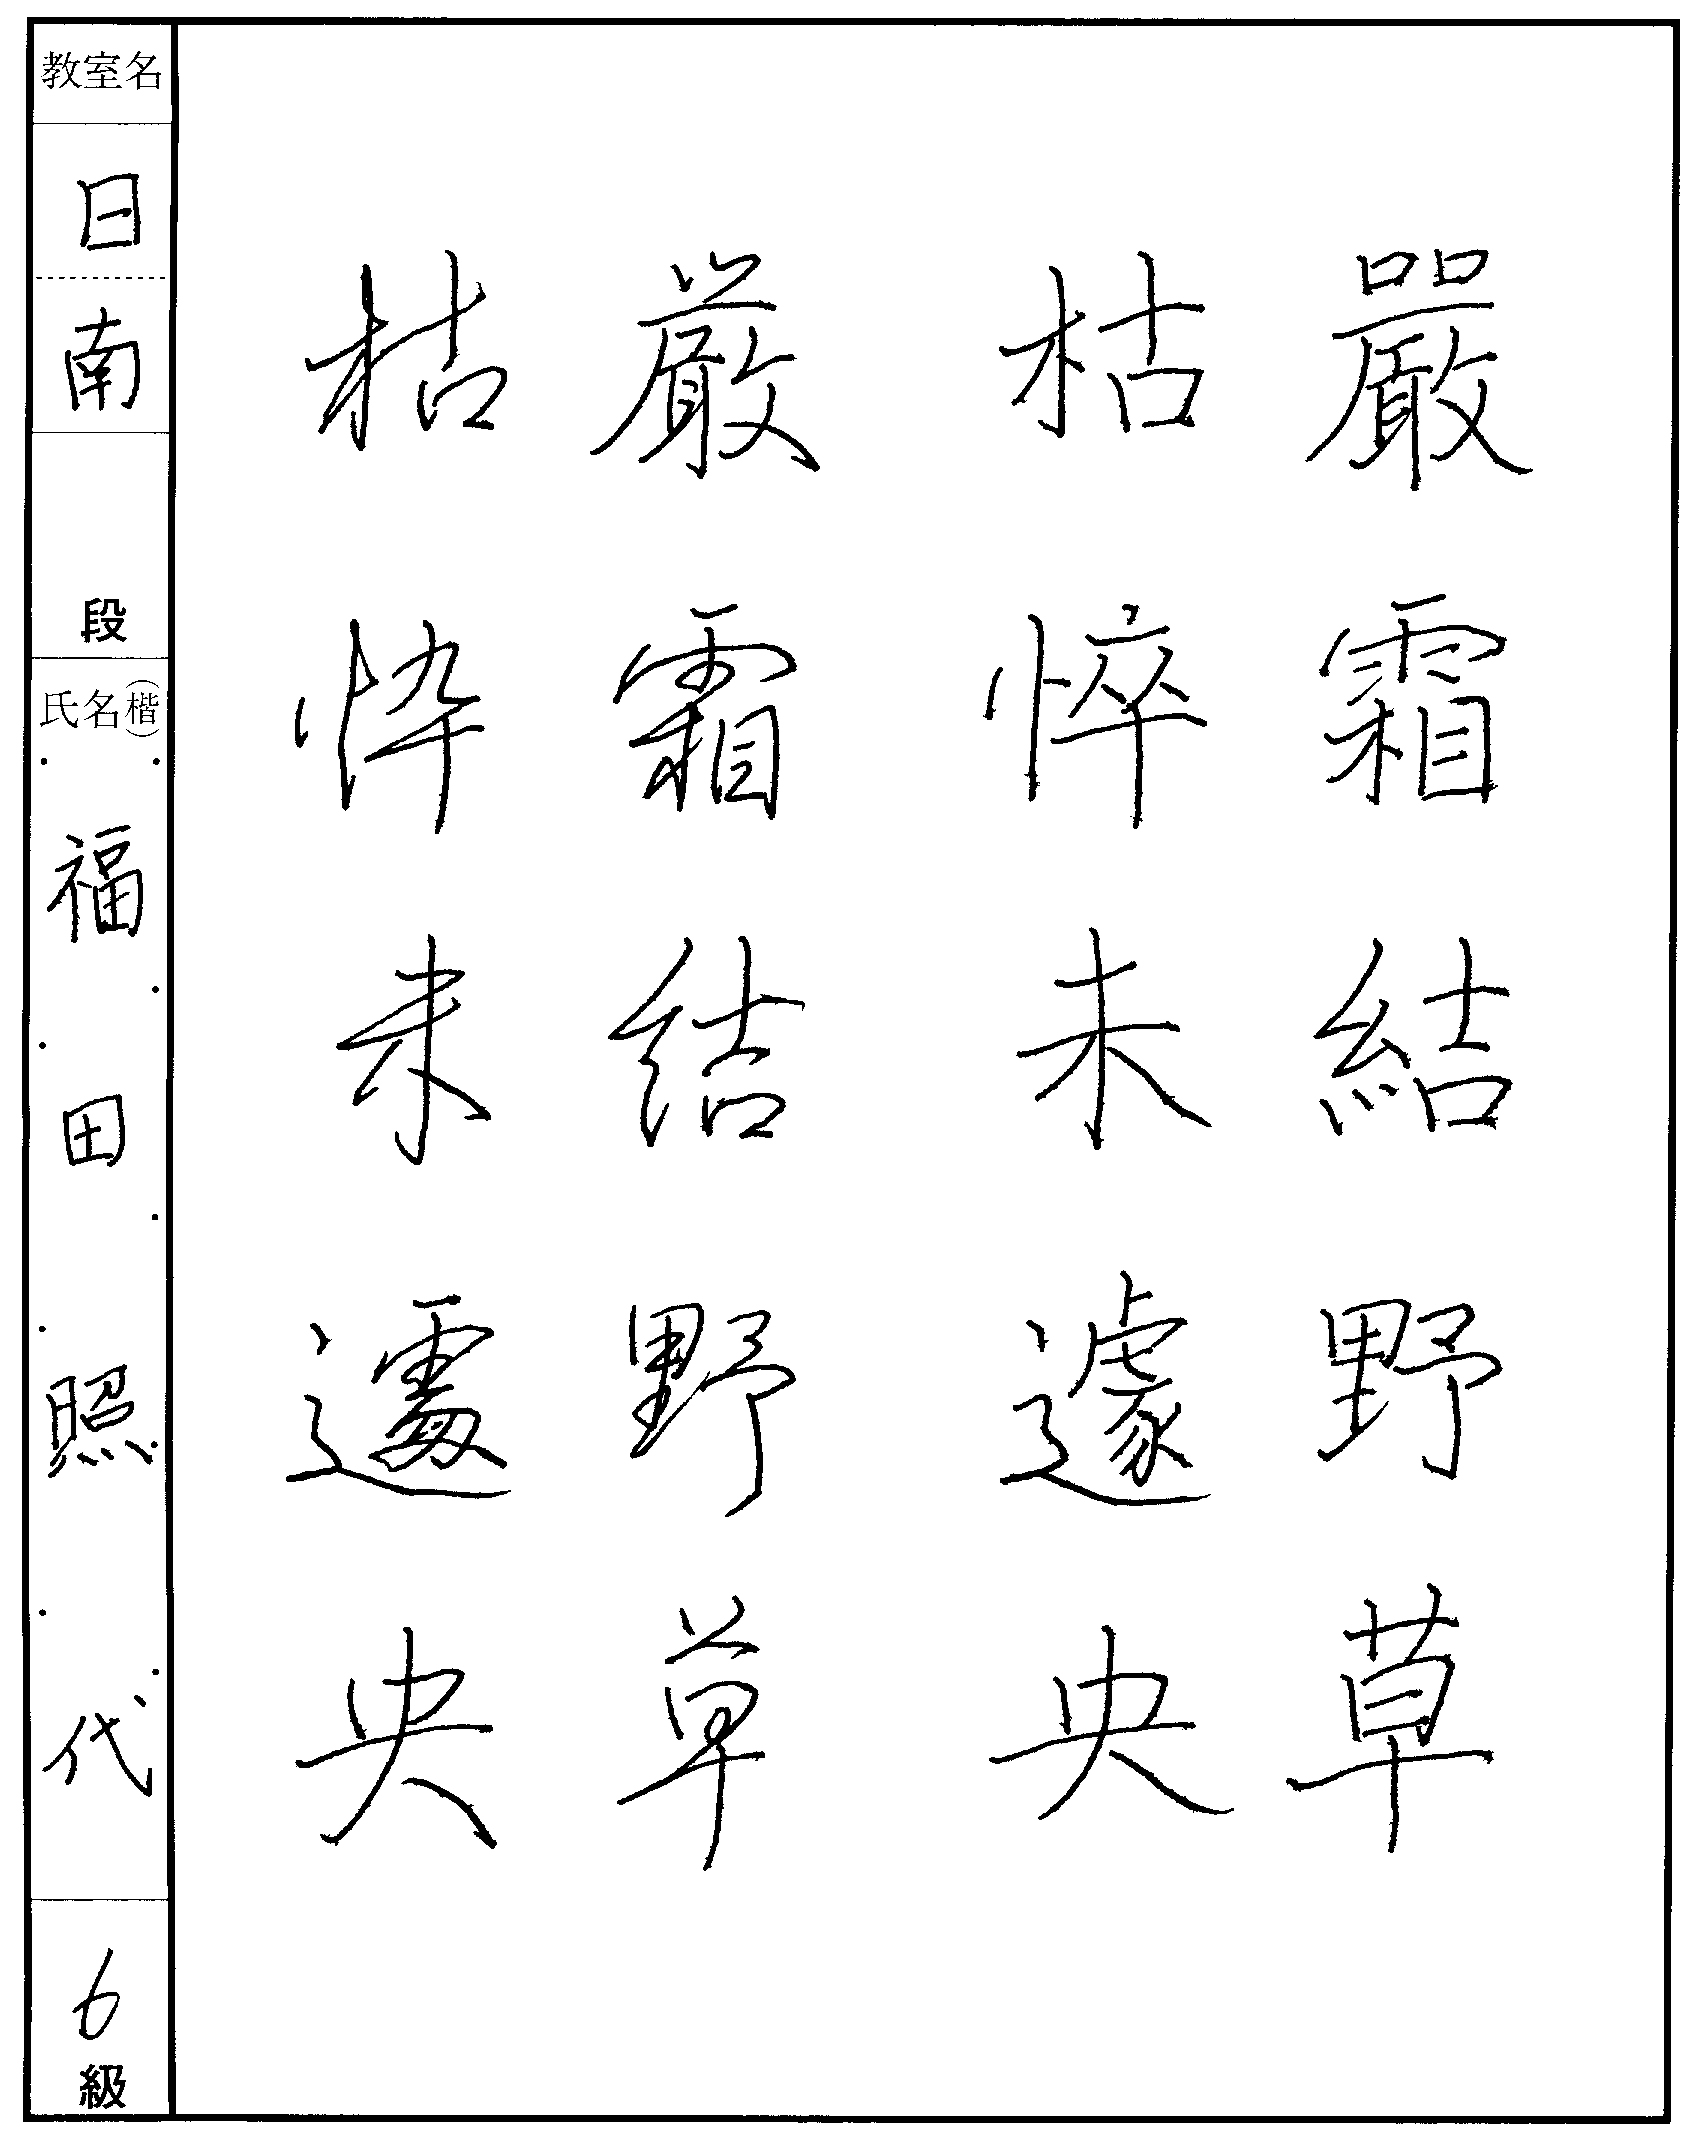 嚴霜結野草
枯悴未遽央
厳霜結野草
枯忰未遽央
教室名
日南
段
氏名(楷)
福田照代
6級